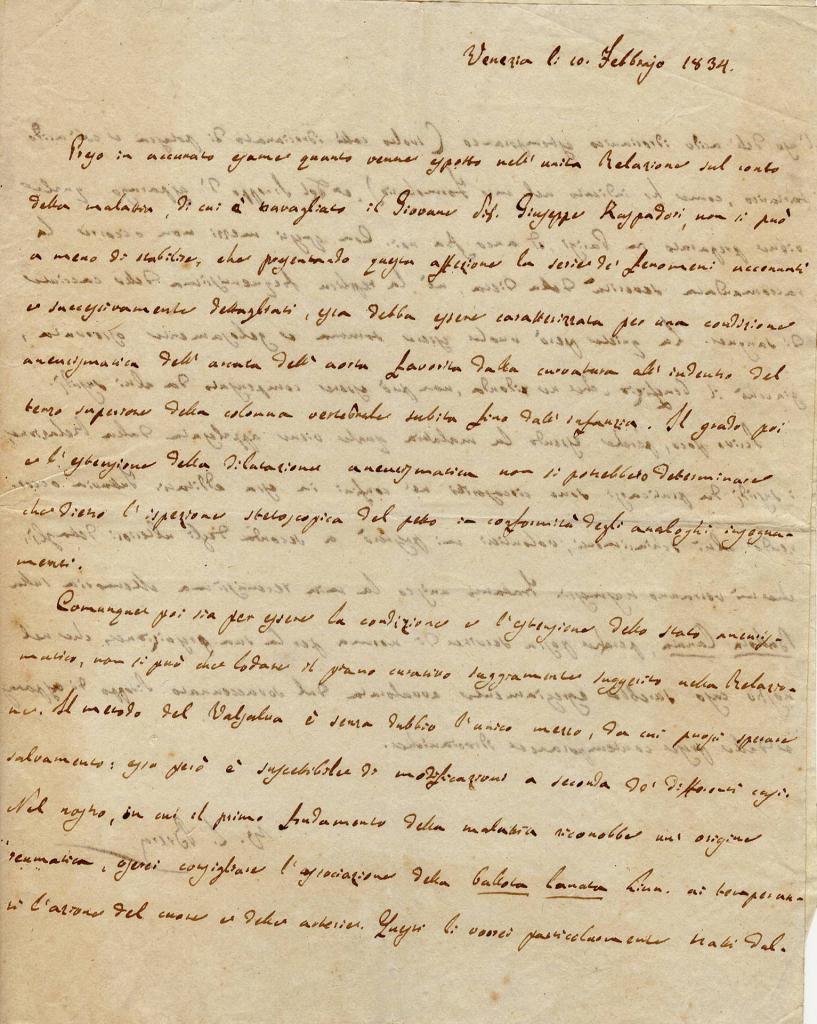 Venezia li 10. Febbrajo 1834.
Preso in accurato esame quanto venne esposto nell' unita Relazione sul conto
della malattia, di cui è travagliato il Giovane Sig. Giuseppe Raspadori, non si può
a meno di stabilire, che presentando questa affezione la serie de' fenomeni accennati
e successivamente dettagliati, essa debba essere caratterizzata per una condizione
aneurismatica dell' arcata dell' aorta favorita dalla curvatura all' indentro del
terzo superiore della colonna vertebrale subita fino dall' infanzia. Il grado poi
e l'estensione della dilatazione aneurismatica non si potrebbero determinare
che dietro l' ispezione stetoscopica del petto in conformità degli analoghi insegna-
menti.
Comunque poi sia per essere la condizione e l'estensione dello stato aneuris-
matico, non si può che lodare il piano curativo saggiamente suggerito nella Relazio-
ne. Il metodo del Valsalva è senza dubbio l'unico mezzo, da cui possa sperare
salvamento: esso però è suscettibile di modificazioni a seconda de' differenti casi.
Nel nostro, in cui il primo fondamento della malattia riconobbe un' origine
reumatica, oserei consigliare l'associazione della Ballota lanata Linn. ai temperan-
ti l'azione del cuore e delle arterie. Questi li vorrei particolarmente tratti dal-